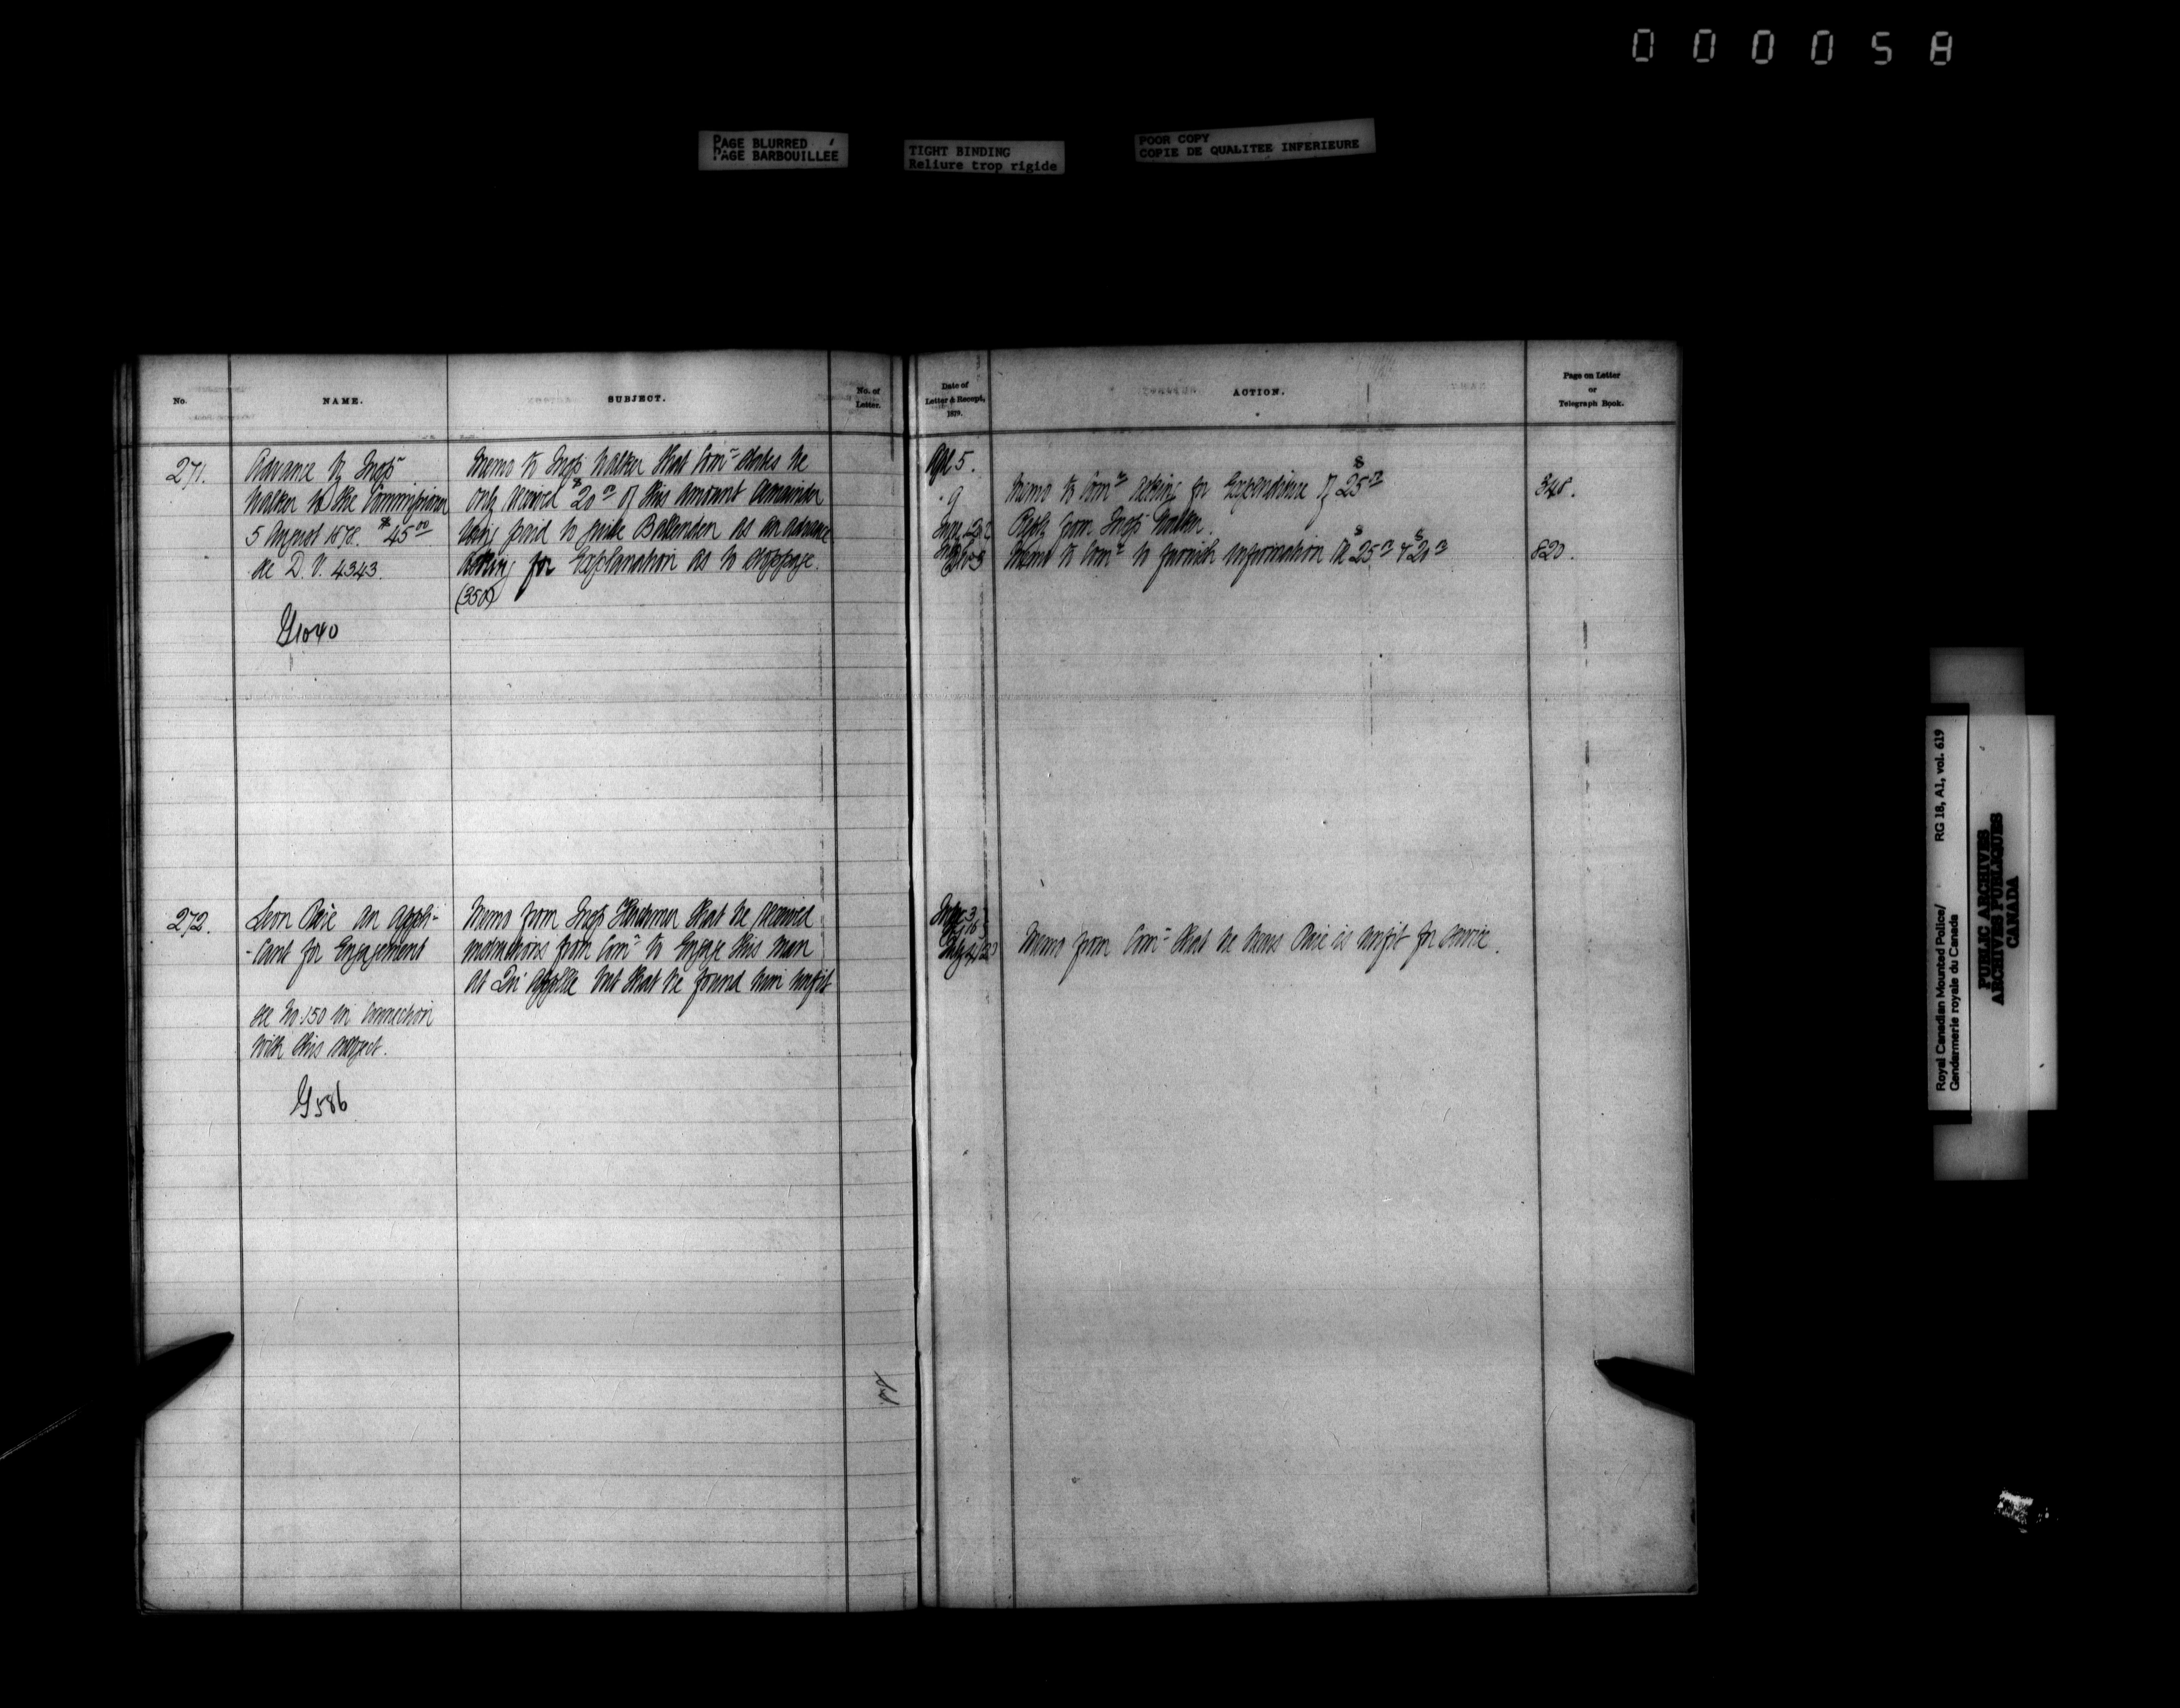 000058
PAGE BLURRED
PAGE BARBOUILLEE
TIGHT BINDING
Reliure trop rigide
POOR COPY
COPIE DE QUALITEE INFERIEURE
No.
NAME.
SUBJECT.
No. of
Letter.
Date of
Letter & Receipt,
1879.
ACTION.
Page on Letter
or
Telegraph Book.
271.
Advance by Insp^r
Walker to the Commissioner
5 August 1878. $45^00
see D.V. 4343.
G1040
Memo to Insp^r Walker that Com^r states he
only received $20 of this amount remainder
being paid to guide Ballenden as an advance
Asking for Explanation as to stoppage.
(350)
Apl 5.
9
Memo to Com^r asking for Expenditure of $25
348.
Reply from Insp^r Walker.
Memo to Com^r to furnish information re $25 & $20
820.
272.
Leon Paré an appli-
-cant for Engagement
see No. 150 in connection
with this subject.
G586
Memo from Insp^r Herchmer that he received
instructions from Com^r to Engage this man
at Qu'appelle but that he found him unfit
Memo from Com^r that he hears Paré is unfit for service.
Royal Canadian Mounted Police/
Gendarmerie royale du Canada
RG 18, A1, vol. 619
PUBLIC ARCHIVES
ARCHIVES PUBLIQUES
CANADA